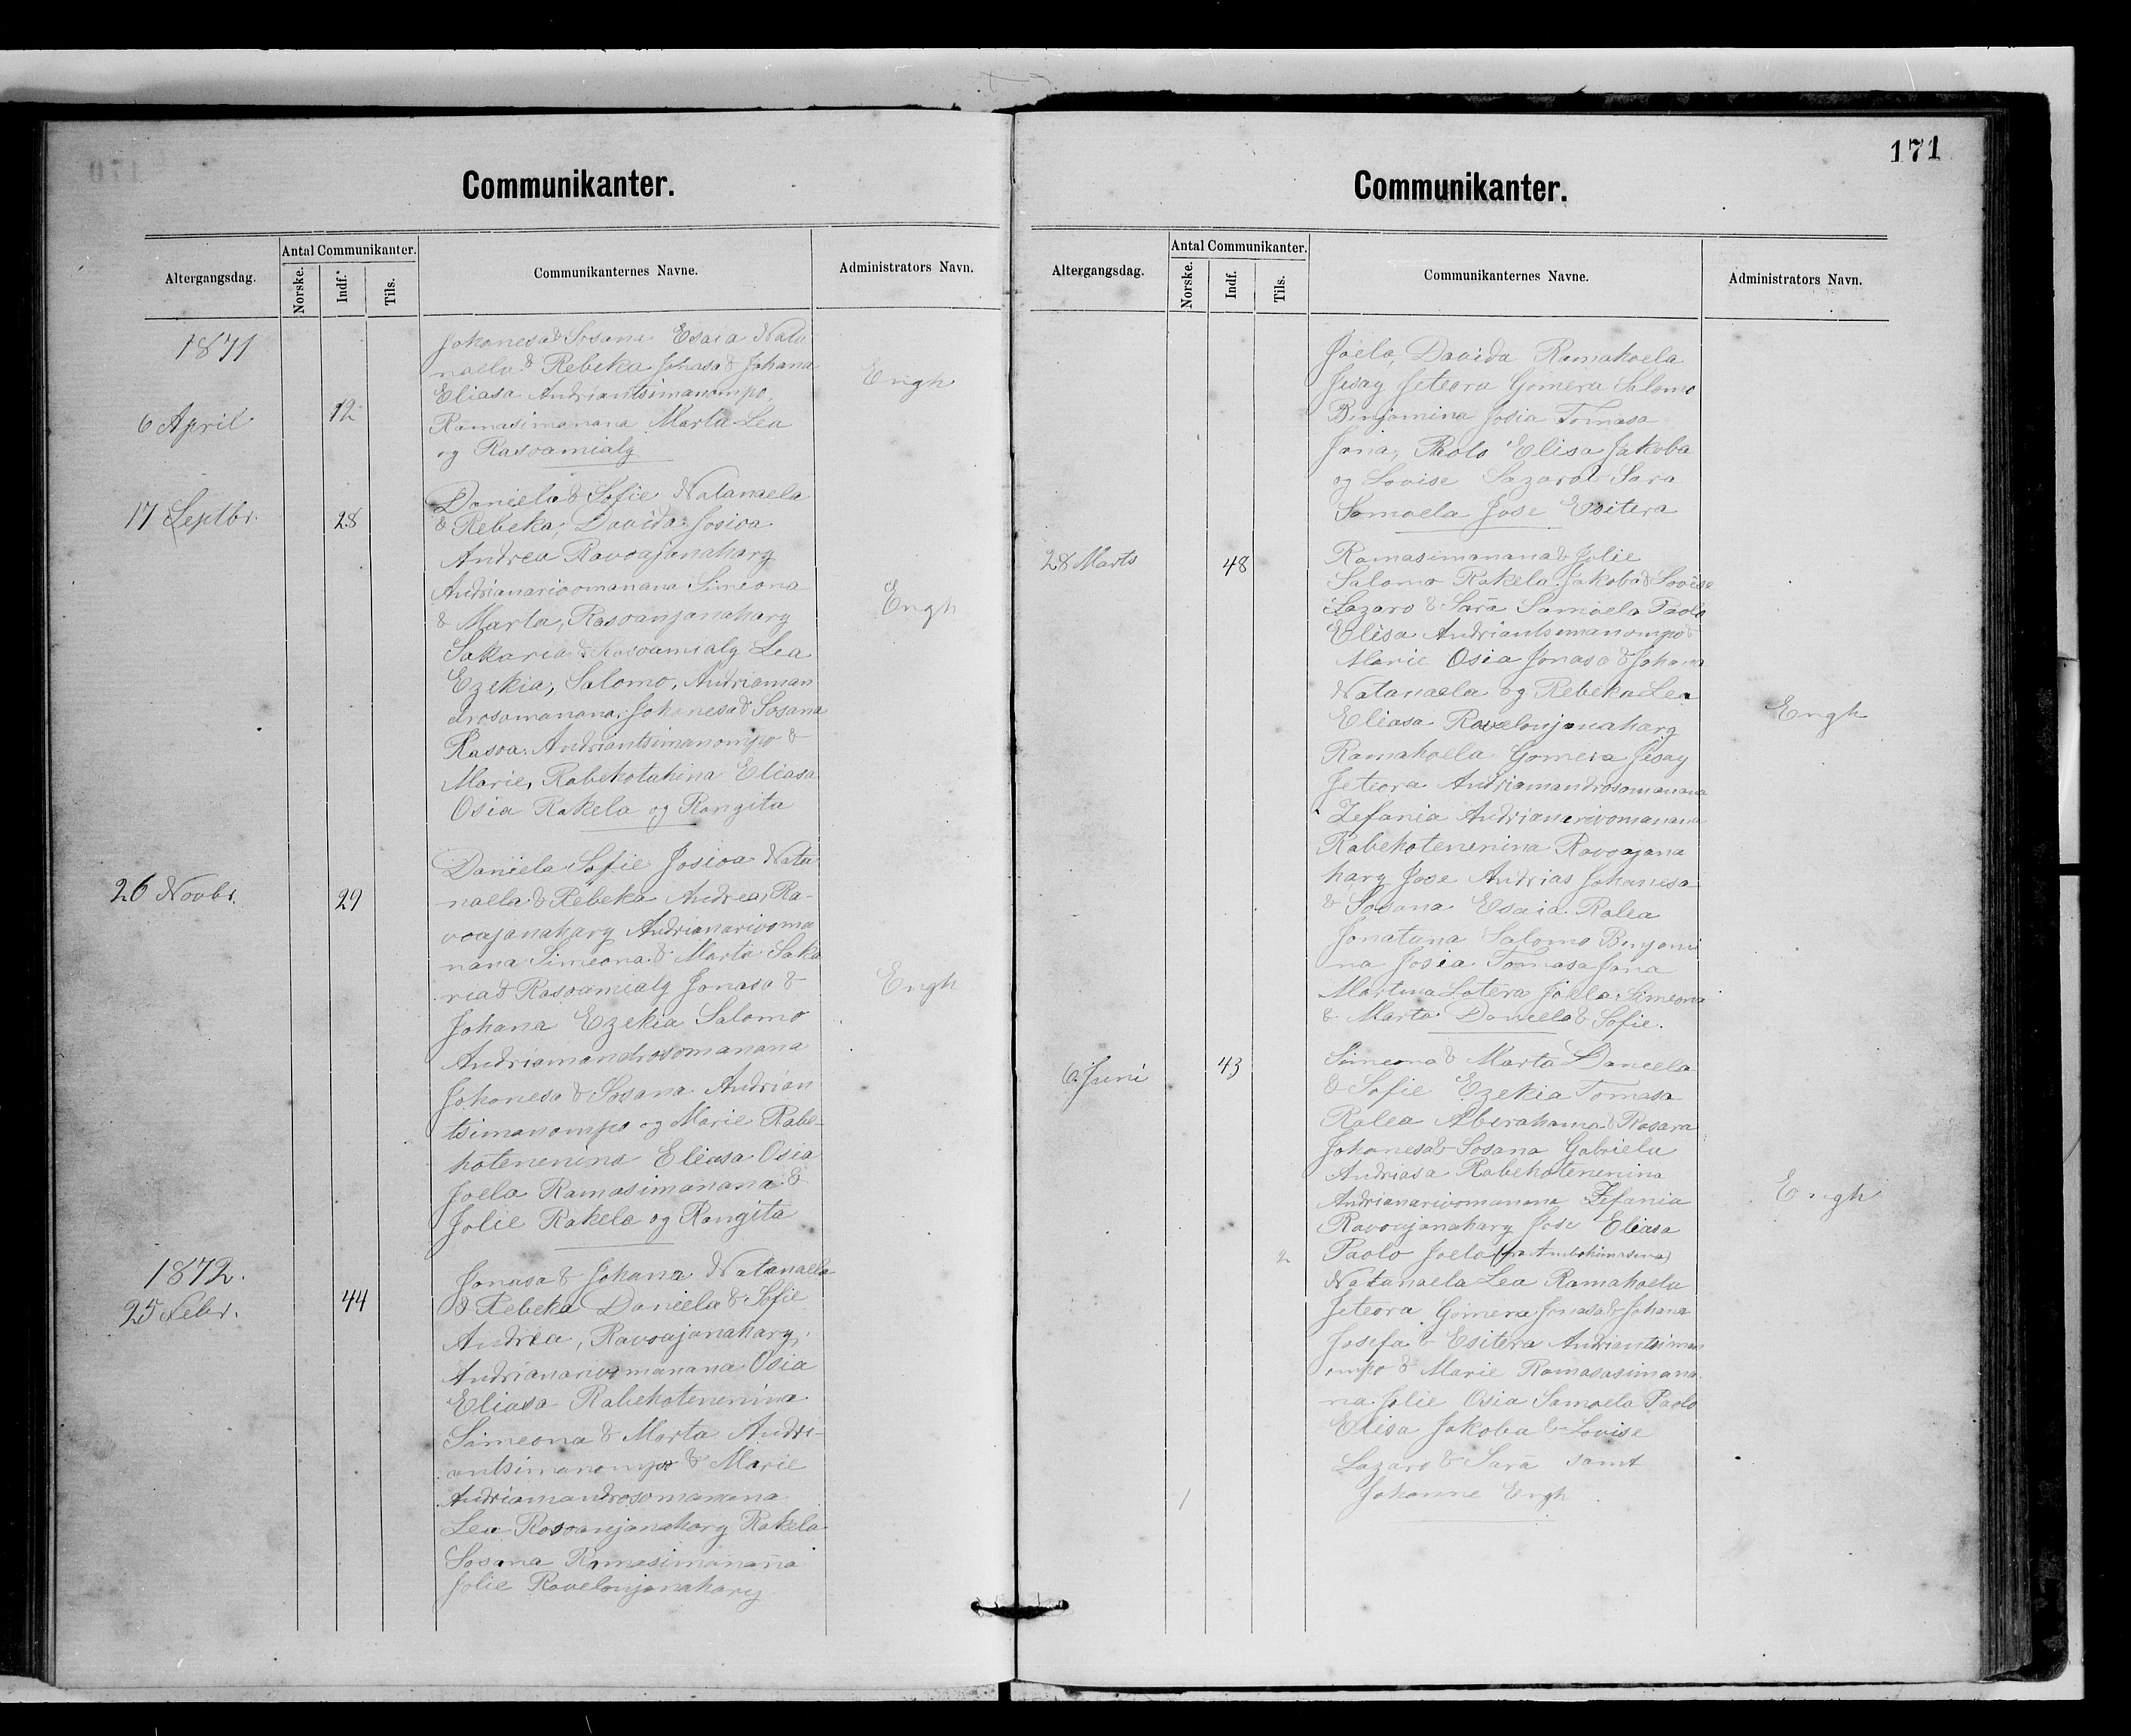 Communikanter.
Altergangsdag.
Antal Communikanter.
Norske.
Indf.
Tils.
Communikanternes Navne.
Administrators Navn.
1871
6 April
12
Johanesa & Sosana Esaia Nata
naela & Rebeka Jonasa & Johana
Eliasa Andriantsimanompo,
Ramasimanana Marta Lea
og Rasoamialy
Engh
17 Septbr.
28
Daniela & Sofie Natanaela
& Rebeka, Davida Josioa
Andrea Ravoajanahary
Andrianarivomanana Simeona
& Marta, Rasoanjanahary
Sakaria & Rasoamialy Lea
Ezekia, Salomo, Andriaman
drosomanana, Johanesa & Sosana
Rasoa, Andriantsimanompo &
Marie, Rabekotahina Eliasa
Osia Rakela og Rangita
Engh
26 Novbr.
29
Daniela Sofie Josioa Nata
naela & Rebeka Andrea, Ra-
voajanahary Andrianarivoma
nana Simeona & Marta Saka
ria & Rasoamialy Jonasa &
Johana Ezekia Salomo
Andriamandrosomanana
Johanesa & Sosana Andrian
tsimanompo og Marie Rabe-
hotenenina Eliasa Osia
Joela Ramasimanana &
Jolie Rakela og Rangita
Engh
1872.
25 Febr.
44
Jonasa & Johana Natanaela
& Rebeka Daniela & Sofie
Andrea, Ravoajanahary,
Andrianarivomanana Osia
Eliasa Rabehotenenina
Simeona & Marta Andri-
antsimanompo & Marie
Andriamandrosomanana
Lea Rasoanjanahary Rakela
Sosana Ramasimanana
Jolie Ravelonjanahary
171
Communikanter.
Altergangsdag.
Antal Communikanter.
Norske.
Indf.
Tils.
Communikanternes Navne.
Administrators Navn.
Joela, Davida Ramahoela
Jesay Jeteora Gomera Salomo
Benjamina Josia Tomasa
Jona, Paolo Elisa Jakoba
og Lovise Lazaro & Sara
Samoela Jose Esitera
28 Marts
48
Ramasimanana & Jolie
Salomo Rakela Jakoba & Lovise
Lazaro & Sara Samoela Paolo
Elisa Andriantsimanompo &
Marie Osia Jonasa & Johana
Natanaela og Rebeka Lea
Eliasa Ravelonjanahary
Ramahoela Gomera Jesay
Jeteora Andriamandrosomanana
Zefania Andrianarivomanana
Rabehotenenina Ravoajana
hary Jose Andrias Johanesa
& Sosana Esaia Ralea
Jonatana Salomo Benjami
na Josia Tomasa Jona
Martina Lotera Joela Simeona
& Marta Daniela & Sofie.
Engh
6. Juni
43
Simeona & Marta Daniela
& Sofie Ezekia Tomasa
Ralea Aberahama & Rasara
Johanesa & Sosana Gabriela
Andriasa Rabehotenenina
Andrianarivomanana Zefania
Ravoajanahary Jose Eliasa
2 Paolo Joela (fra Ambohimasina)
Natanaela Lea Ramahoela
Jeteora Gomera Jonasa & Johana
Josefa & Esitera Andriantsiman
ompo & Marie Ramasasimana
na Jolie Osia Samoela Paolo
Elisa Jakoba & Lovise
Lazaro & Sara samt
1 Johanne Engh
Engh